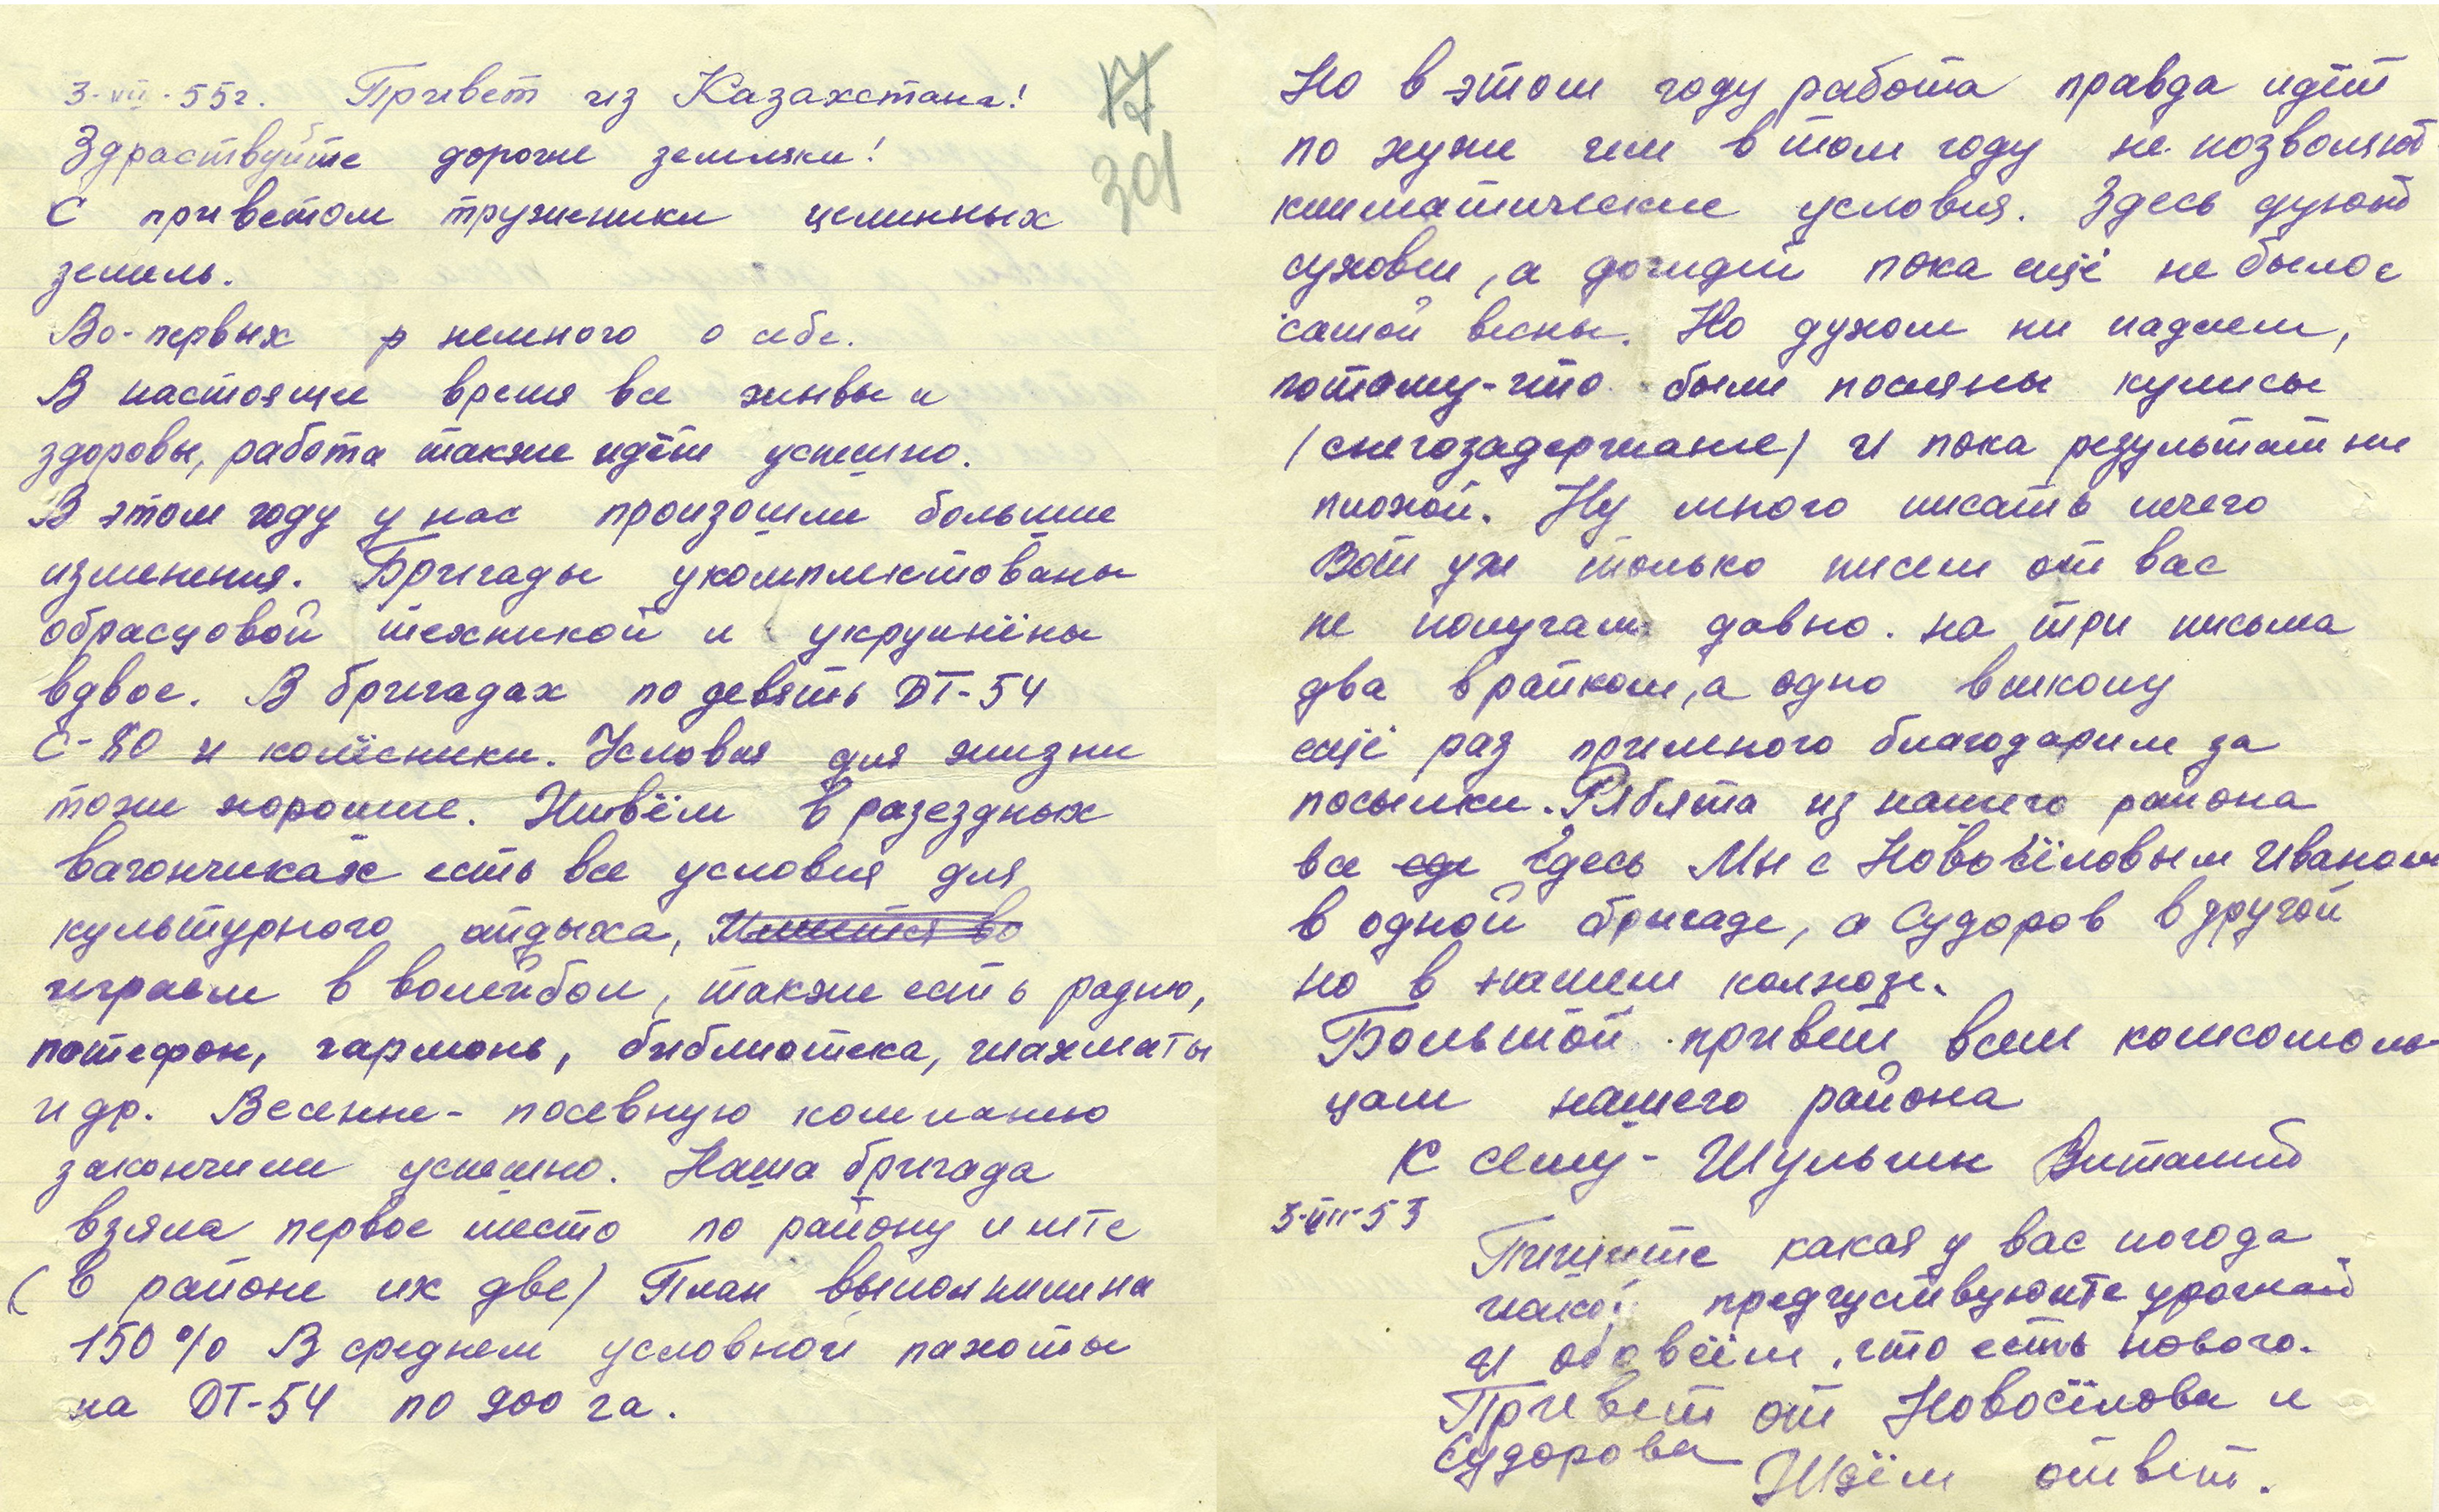 3-VII-55г. Привет из Казахстана!
17
301
Здраствуйте дороги земляки!
С приветом труженики целинных
земель.
Во-первых немного о себе.
В настояще время все живы и
здоровы, работа также идёт успешно.
В этом году у нас произошли большие
изменения. Бригады укомплектованы
обрасцовой техникой и укрупнёны
вдвое. В бригадах по девять ДТ-54
С-80 и колёсники. Условия для жизни
тоже хорошие. Живём в разездных
вагончиках есть все условия для
культурного отдыха, Имеется во
играем в волейбол, также есть радио,
потефон, гармонь, библиотека, шахматы
и др. Весенне-посевную компанию
закончили успешно. Наша бригада
взяла первое место по району и мтс
(в районе их две) План выполнили на
150% В среднем условной пахоты
на ДТ-54 по 900 га.
Но в этом году работа правда идёт
по хуже чем в том году не позволяют
климатические условия. Здесь дуют
суховеи, а дождей пока ещё не было с
самой весны. Но духом ни падаем,
потому-что были посеяны кулисы
(снегозадержание) и пока результат не
плохой. Ну много писать нечего
Вот уж только писем от вас
не получали давно. на три письма
два в райком, а одно в школу
ещё раз примного благодарим за
посылки. Рябята из нашего района
все сде здесь Мы с Новосёловым Иваном
в одной бригаде, а Судоров в другой
но в нашем колхозе.
Большой привет всем комсомоль-
цам нашего района
К сему - Шульгин Виталий
3-VII-53
Пишите какая у вас погода
какой предчуствуюите урожай
и обо всём, что есть нового.
Привет от Новосёлова и
Судорова Ждём ответ.